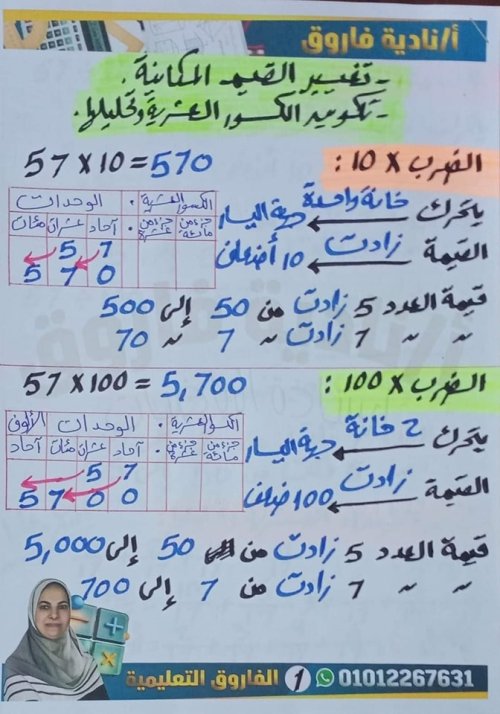 أ/نادية فاروق
- تغيير القيم المكانية.
- تكوين الكسور العشرية وتحليلها.
الضرب × 10 :
57 × 10 = 570
يتحرك ← خانة واحدة جهة اليسار
القيمة ← زادت 10 أضعاف
الكسور العشرية . الوحدات
جزء من مائة جزء من عشرة . آحاد عشرات مئات
5 7
5 7 0
قيمة العدد 5 زادت من 50 إلى 500
〃 〃 7 زادت 〃 7 〃 70
الضرب × 100 :
57 × 100 = 5,700
يتحرك ← 2 خانة جهة اليسار
القيمة ← زادت 100 ضعف
الكسور العشرية . الوحدات الألوف
جزء من مائة جزء من عشرة . آحاد عشرات مئات آحاد
5 7
5 7 0 0
قيمة العدد 5 زادت من 50 إلى 5,000
〃 〃 7 زادت من 7 إلى 700
الفاروق التعليمية 1 01012267631